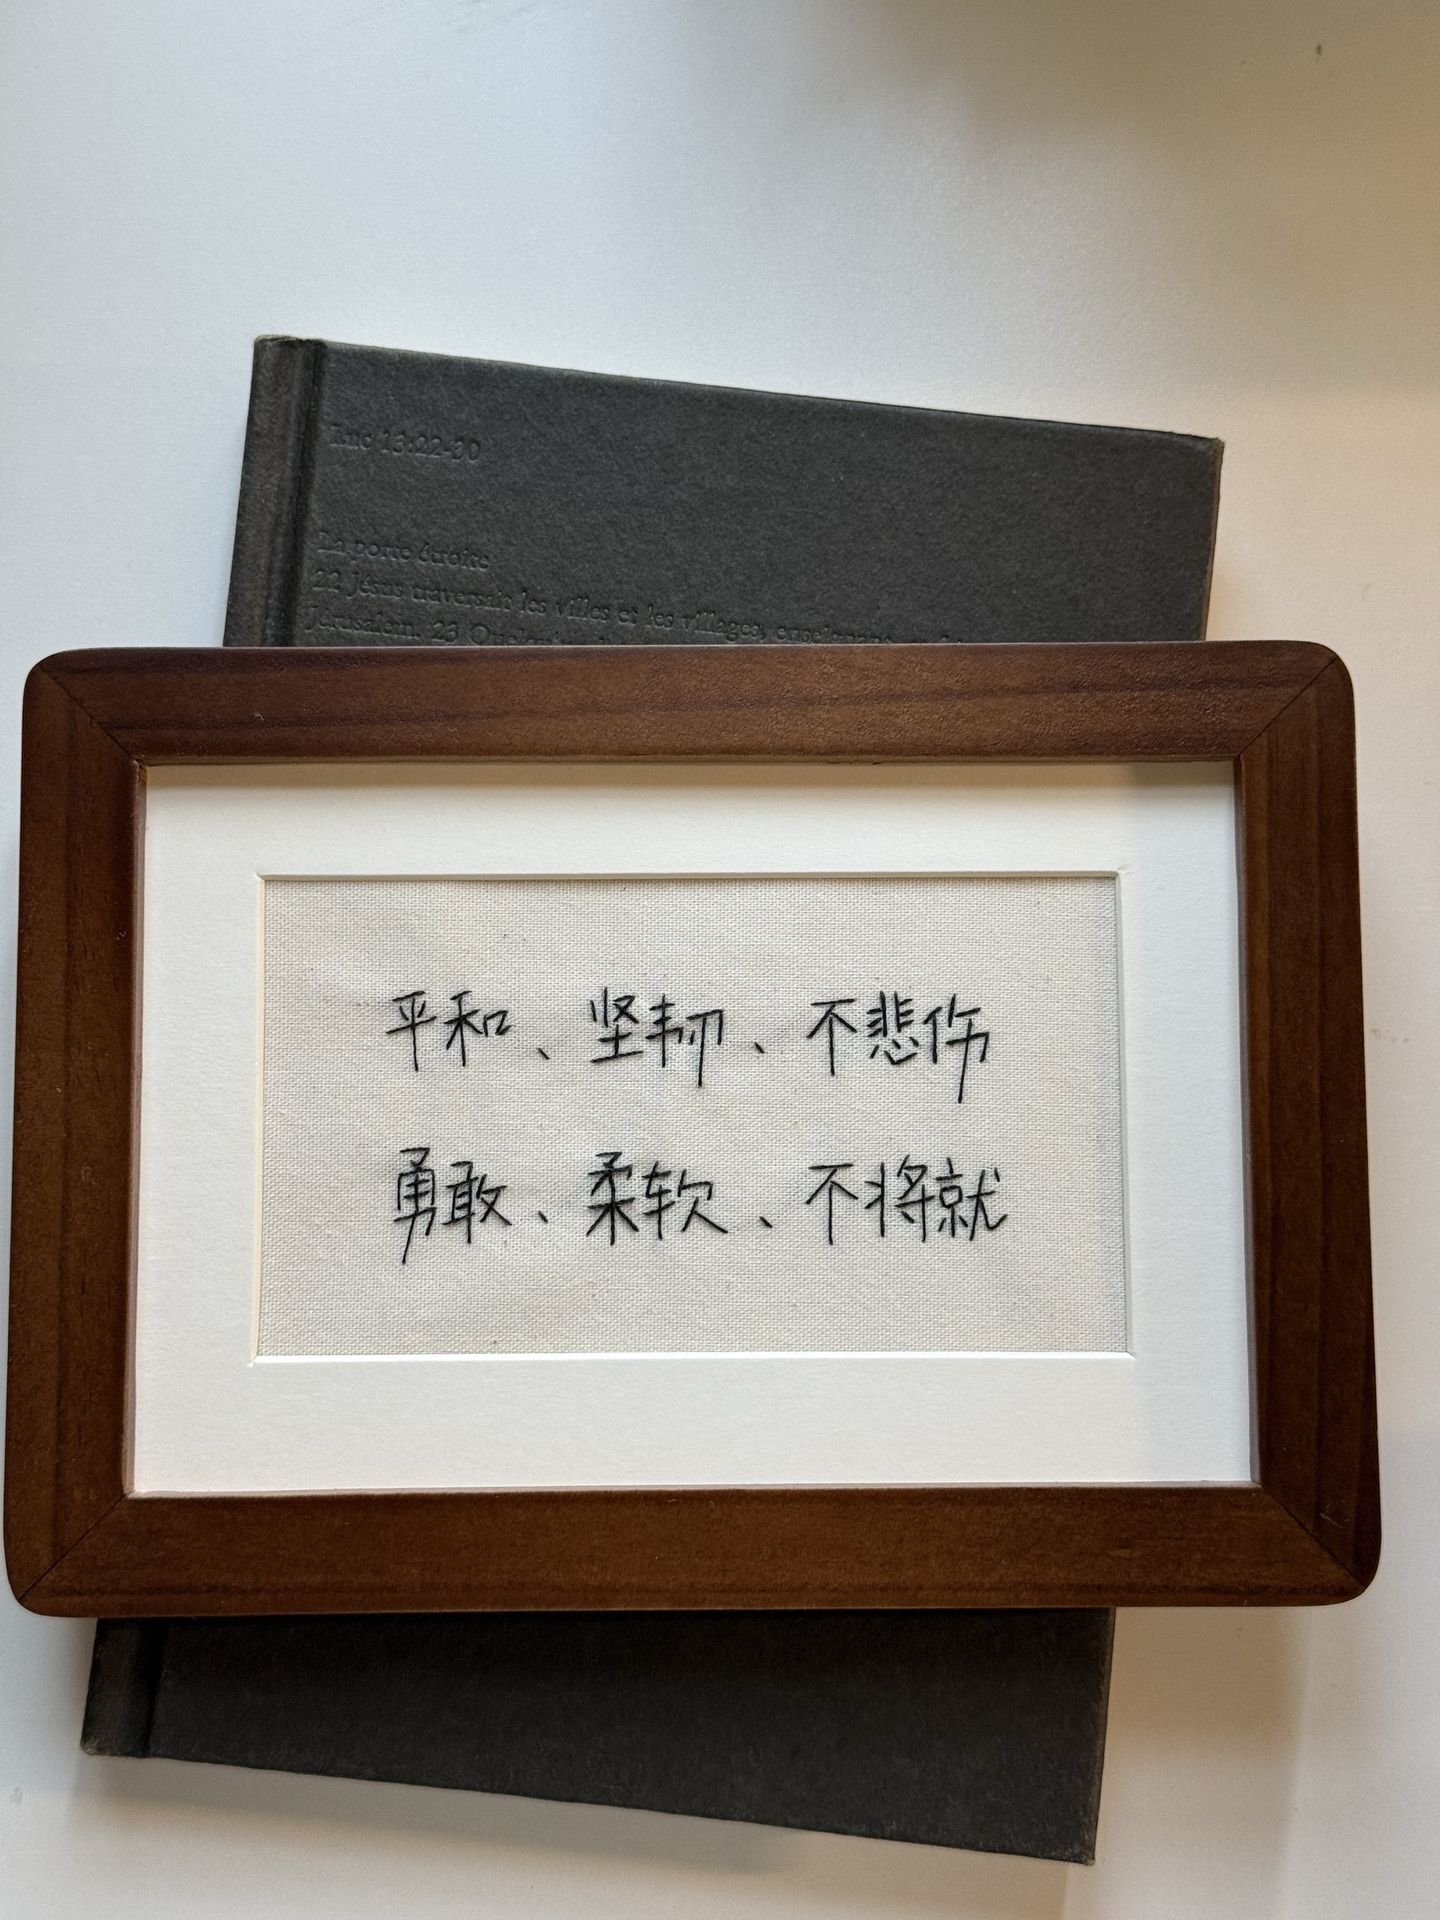 Luc 13:22-30
La porte étroite
22 Jésus traversait les villes et les villages, enseignant
Jérusalem. 23
平和、坚韧、不悲伤
勇敢、柔软、不将就